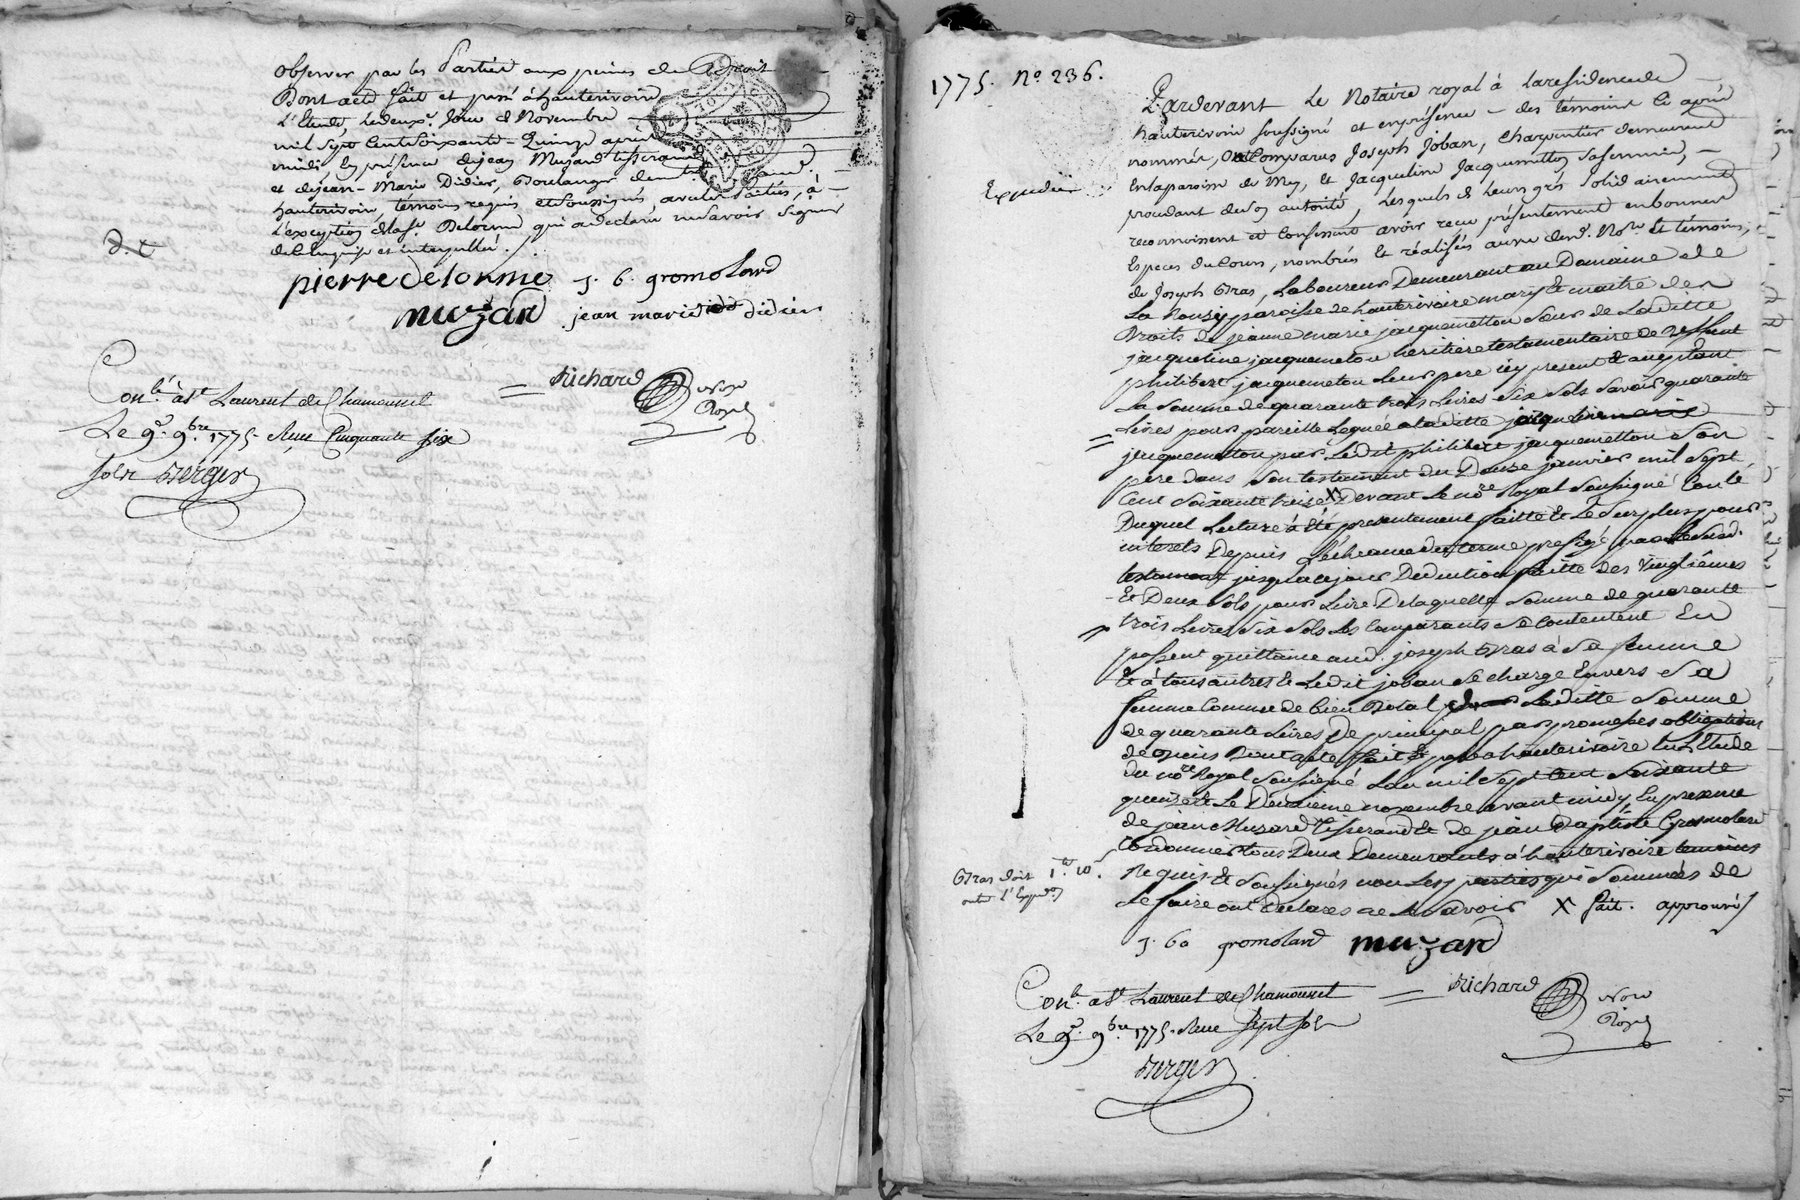 observer par les Parties aux peines de Droit
Dont acte fait et passé à hauterivoire
L'Etude, Le deuxe. Jour de Novembre
mil Sept Cent Soixante-Quinze après
midi En présence de jean Muzard tisserand
et de jean-Marie Didier, Boulanger demts.
hauterivoire, témoins requis et soussignés, avec les Parties, à
L'exception de lad. Delorme qui a déclaré ne savoir Signer
de ce enquise et interpellée.
d. t
pierre delorme J. B. gromoLard
muzard jean marie didier
Richard Nore Royal
Conlé. à St. Laurent de Chamousset
Le 9e. 9bre. 1775. Reçu Cinquante Six
Sols Berger
1775. No. 236.
Expédié
Pardevant Le Notaire royal à La résidence de
hauterivoire soussigné et en présence des témoins ci après
nommés, ont Comparus Joseph Joban, Charpentier demeurant
En la paroisse de Mey, et Jacqueline Jacquemetton sa femme,
procédant de Son autorité, Lesquels de Leurs grés Solidairement
reconnoissent et Confessent avoir reçu présentement en bonnes
Especes du Cours, nombrés et réalisés au vu dud. Nore. et témoins,
de Joseph Gras, Laboureur Demeurant au Domaine de
La paroisse de hauterivoire mary et maitre des
Droits de jeanne marie jacquemetton soeur de Laditte
jacqueline jacquemeton heritiere testamentaire de deffunt
philibert jacquemeton Leur pere icy present et acceptant
La Somme de quarante trois Livres Six Sols Savoir quarante
Livres pour pareille Leguée a laditte
jacquemetton par Ledit philibert jacquemetton Son
pere dans Son testament du Douze janvier mil Sept
Cent Soixante treize X Devant Le nore Royal Soussigné
Duquel Lecture à été presentement faitte et Le Surplus pour
interets Depuis L'échéance du terme prefigé par Le susd.
testament jusqu'a ce jour Deduction faitte des vingtiêmes
Et Deux Sols pour Livre De laquelle Somme de quarante
trois Livres Six Sols Les Comparants Se Contentent En
passent quittance aud. joseph Gras à Sa femme
Et à tous autres Et Ledit joban Se charge Envers Sa
femme Comme de bien Dotal Laditte Somme
de quarante Livres De principal par promesses obligations
de Droits Dont acte fait et passé a hauterivoire En L'Etude
du nore Royal Soussigné L'an mil Sept Cent Soixante
quinze et Le Deuxieme novembre avant midy En presence
de jean Muzard tisserand Et de jean Baptiste Gromolard
Cordonnier tous Deux Demeurants à hauterivoire temoins
Requis Et Soussignés non Les parties qui Sommées de
Le faire ont Declarés ne Le Savoir X fait. approuvé
Gras doit 1 10
outre l'Exped.
J. B. gromolard muzard
Conlé. a St. Laurent de Chamousset Richard Nore
Le 9e. 9bre 1775. Reçu Sept Sols Royal
Berger